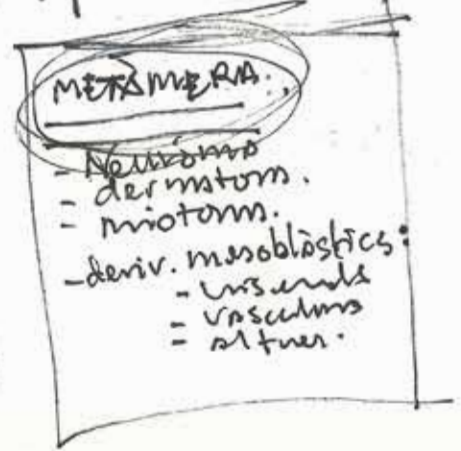 METÀMERA:
- Neuroma
- dermatoms.
- miotoms.
- deriv. mesoblàstics:
- viscerals
- vasculars
-